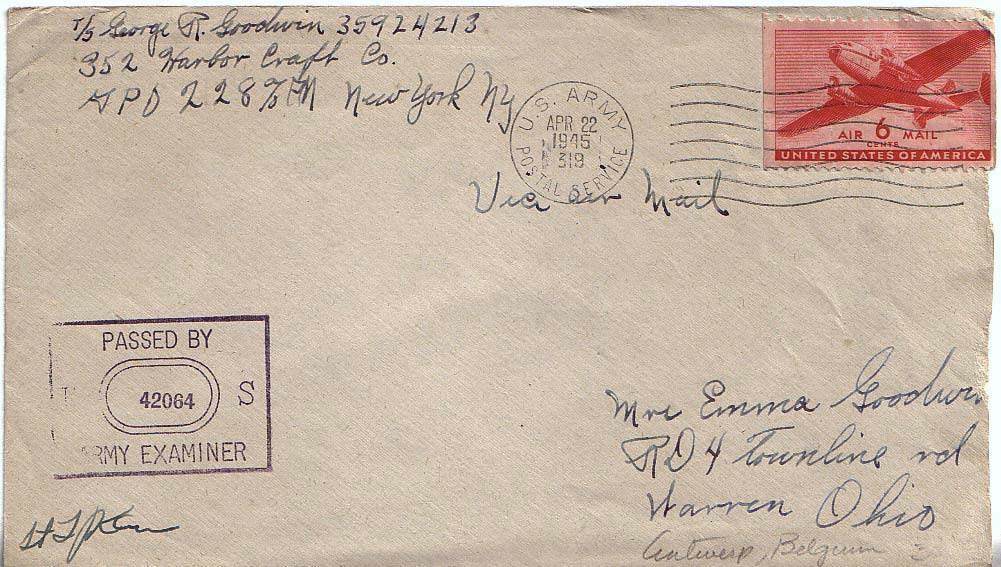 T/5 George R. Goodwin 35924213
352 Harbor Craft Co.
APO 228 % PM New York NY
U.S. ARMY
APR 22
1945
319
POSTAL SERVICE
AIR 6 MAIL
CENTS
UNITED STATES OF AMERICA
Via air Mail
PASSED BY
42064
S
ARMY EXAMINER
Mrs Emma Goodwin
RD 4 Townline rd
Warren Ohio
Antwerp, Belgium